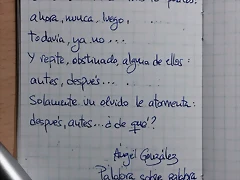 ahora, nunca, luego,
todavía, ya no...
Y repite, obstinado, alguna de ellas:
antes, después...
Solamente un olvido le atormenta:
después, antes... ¿de qué?
Ángel González
Palabra sobre palabra